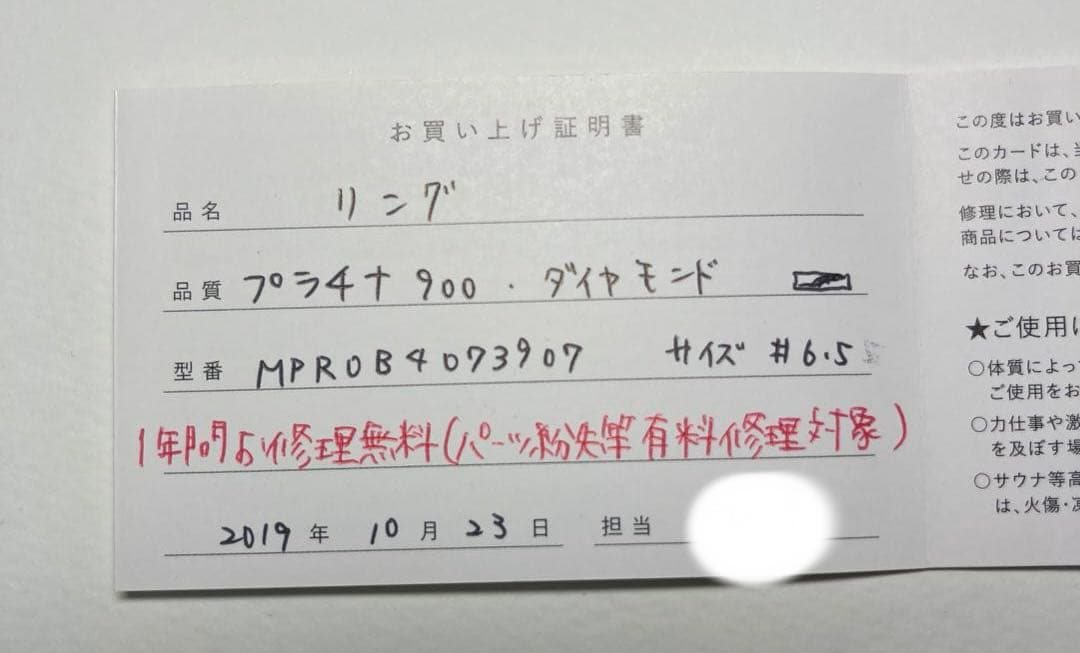 お買い上げ証明書
品名 リング
品質 プラチナ900.ダイヤモンド
型番 MPROB4073907 サイズ #6.5
1年間お修理無料(パーツ紛失等有料修理対象)
2019年10月23日 担当
この度はお買い
このカードは、当
せの際は、この
修理において、
商品については
なお、このお買
★ご使用に
○体質によっ
ご使用をお
○力仕事や激
を及ぼす場
○サウナ等高
は、火傷・凍